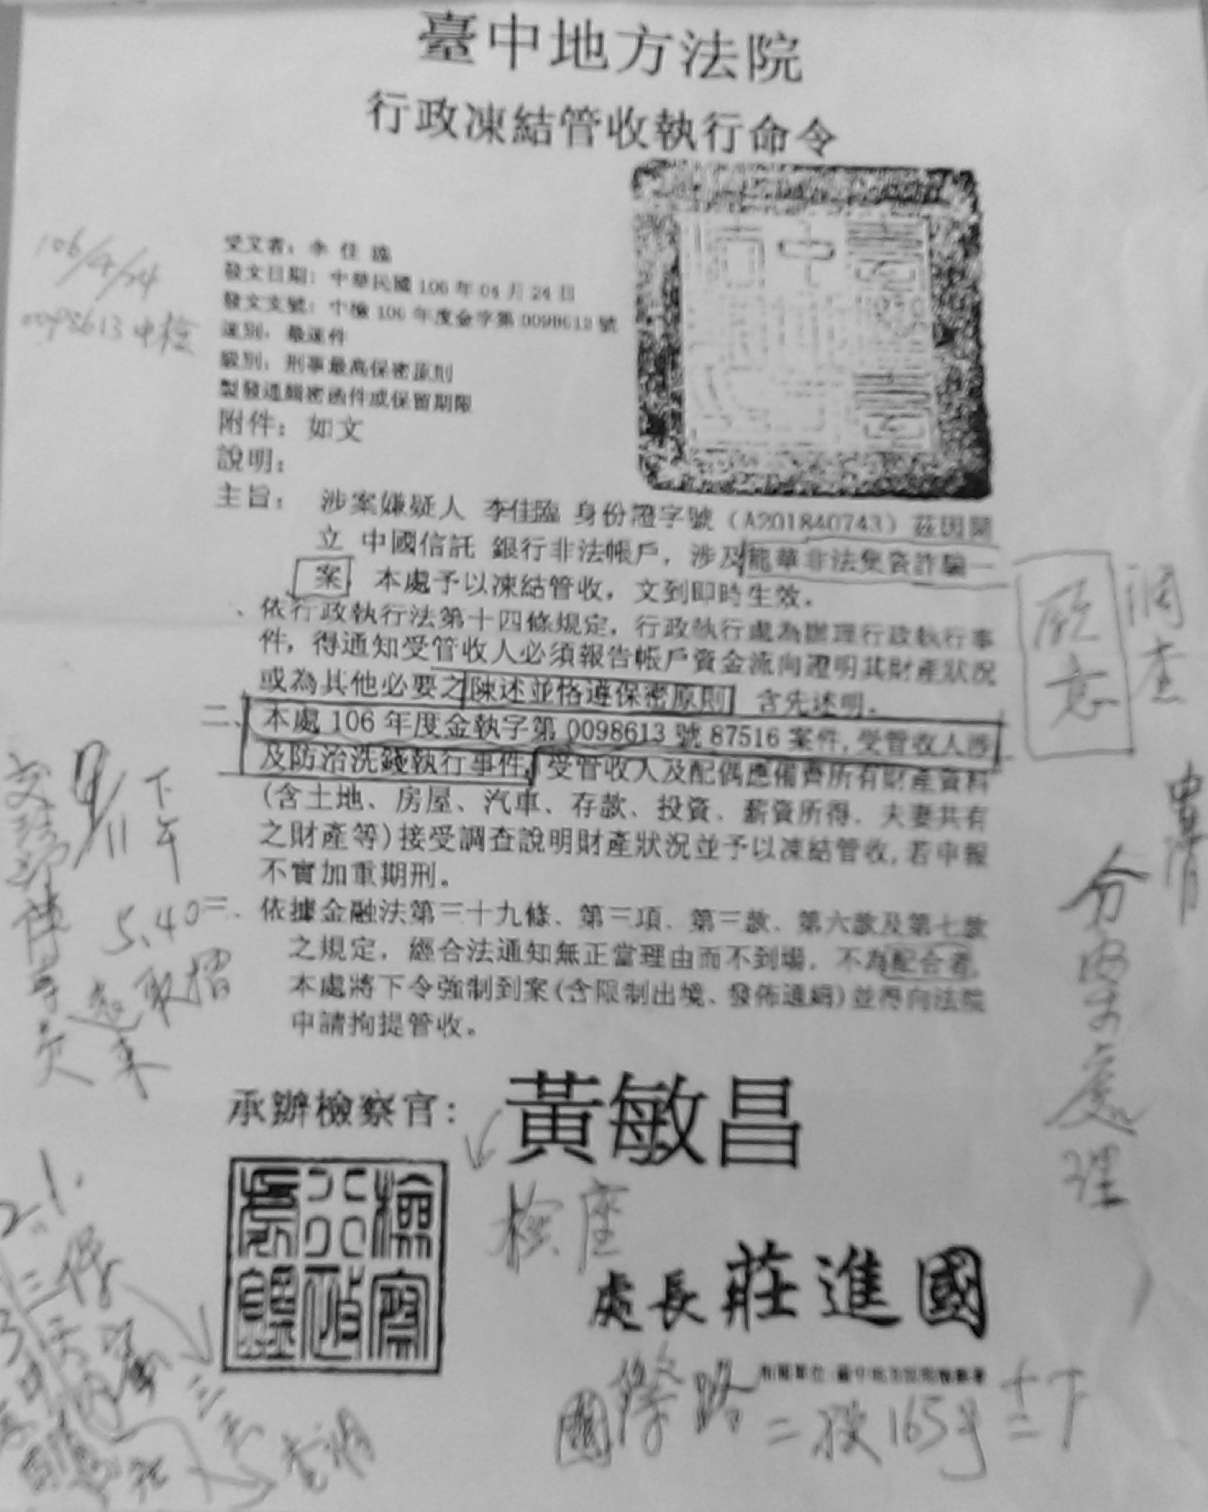 臺中地方法院
行政凍結管收執行命令
受文者：李佳臨
發文日期：中華民國 106 年 04 月 24 日
發文文號：中檢 106 年度金字第 0098613 號
速別：最速件
級別：刑事最高保密原則
製發通緝密函件或保留期限
附件：如文
說明：
主旨： 涉案嫌疑人 李佳臨 身份證字號（A201840743）茲因開
立 中國信託 銀行非法帳戶，涉及龍華非法集資詐騙一
案，本處予以凍結管收，文到即時生效。
、依行政執行法第十四條規定，行政執行處為辦理行政執行事
件，得通知受管收人必須報告帳戶資金流向證明其財產狀況
或為其他必要之陳述並恪遵保密原則 含先述明。
二、本處 106 年度金執字第 0098613 號 87516 案件，受管收人涉
及防治洗錢執行事件，受管收人及配偶應備齊所有財產資料
(含土地、房屋、汽車、存款、投資、薪資所得、夫妻共有
之財產等)接受調查說明財產狀況並予以凍結管收，若申報
不實加重期刑。
三、依據金融法第三十九條、第三項、第三款、第六款及第七款
之規定，經合法通知無正當理由而不到場，不為配合者，
本處將下令強制到案(含限制出境、發佈通緝)並得向法院
申請拘提管收。
承辦檢察官：黃敏昌
檢座
處長 莊進國
106/4/24
0098613 中檢
調查
分案處理
下午
5.40
國際路二段165号